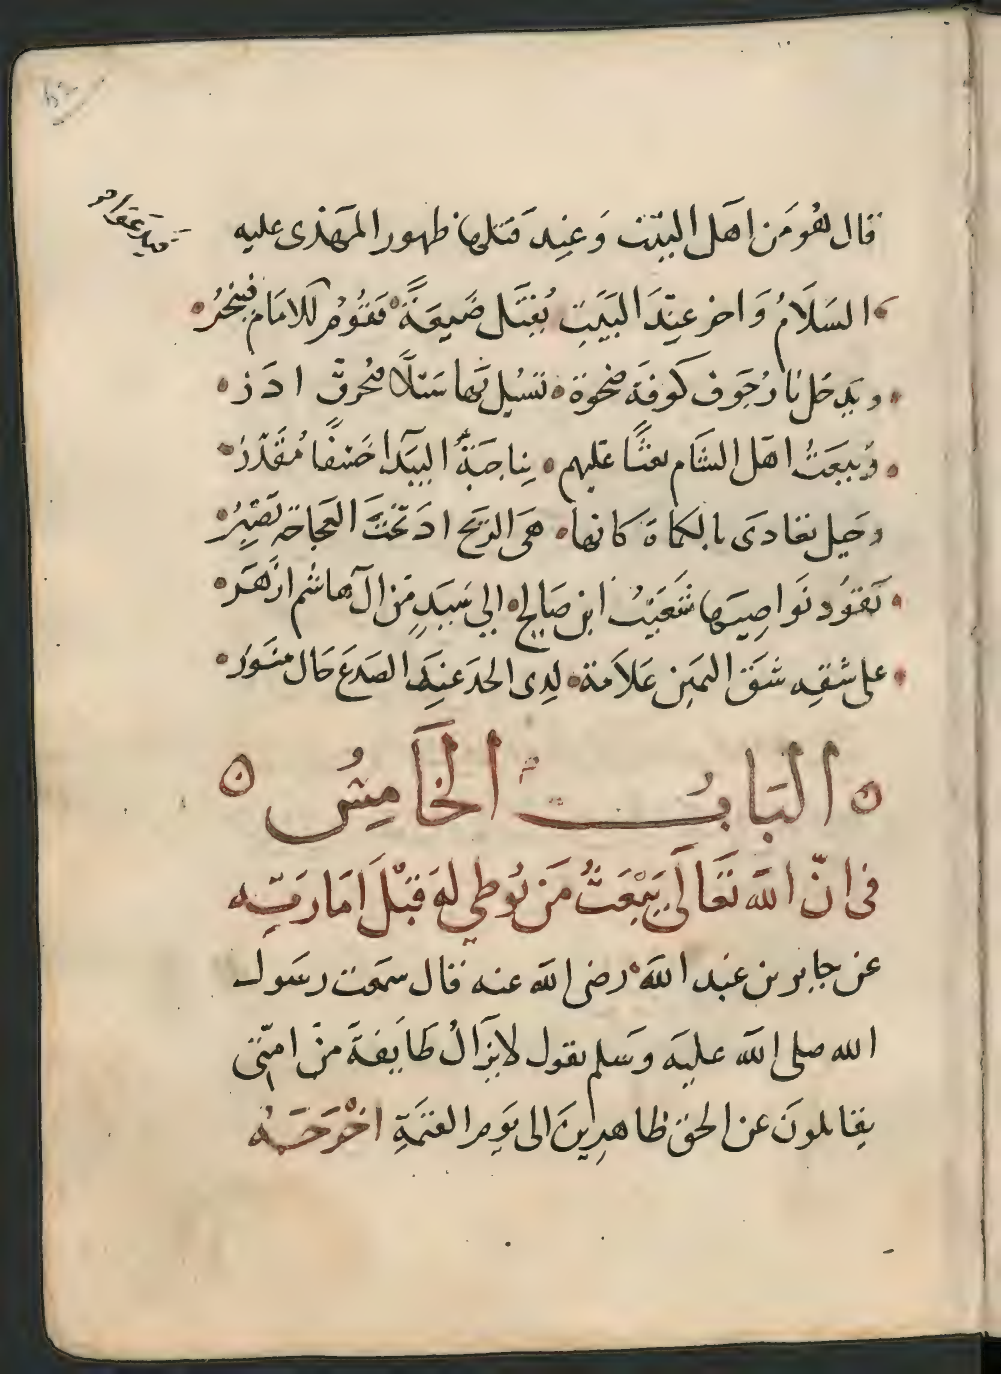 قال هو من اهل البيت وعند قتلها ظهور المهدى عليه
السلام واخر عند البيت يقتل ضيعة فيقوم للامام فينحر
ويدخل نار جوف كوفة ضحوة تسيل بها سيلا فتحرق ادر
ويبعث اهل الشام بعثا عليهم بناحية البيدا خسفا مقدر
وخيل تغادى بالكماة كانها هى الريح اد تحت العجاجة تصير
تقود نواصيها شعيب ابن صالح الى سيد من آل هاشم ازهر
على شقه شق اليمين علامة لدى الخد عند الصدغ خال منور
الباب الخامس
فى ان الله تعالى يبعث من يوطى له قبل امارته
عن جابر بن عبد الله رضى الله عنه قال سمعت رسول
الله صلى الله عليه وسلم يقول لا يزال طايفة من امتى
يقاتلون عن الحق ظاهرين الى يوم القيمة اخرجه